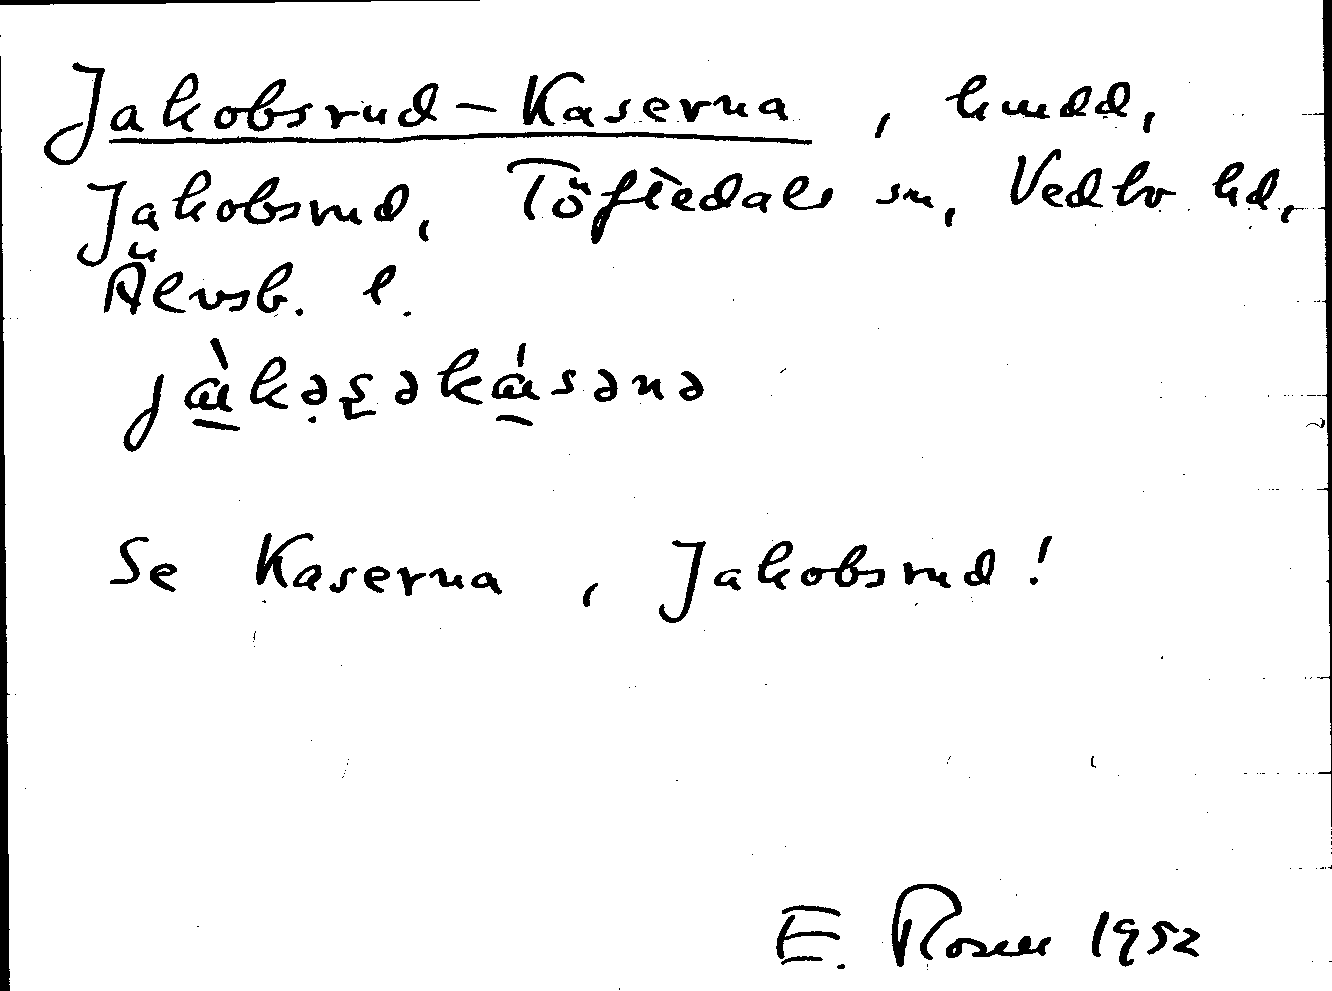 Jakobsrud-Kaserna, hmdd,
Jakobsrud, Töftedals sn, Vedbo hd,
Älvsb. l.
Se Kaserna, Jakobsrud!
E. Rosell 1952